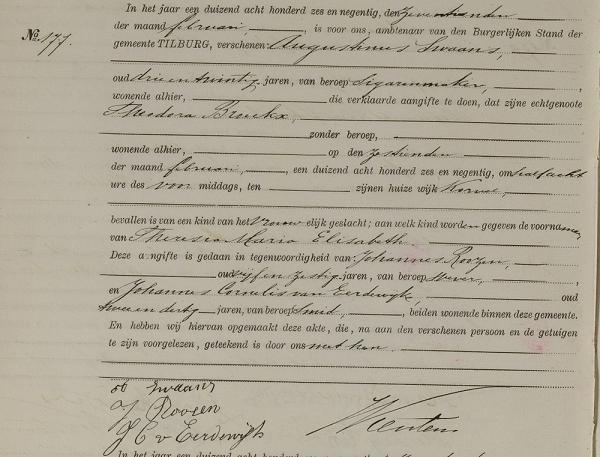 In het jaar een duizend acht honderd zes en negentig, den zeventienden
der maand februari, is voor ons, ambtenaar van den Burgerlijken Stand der
No. 177.
gemeente TILBURG, verschenen: Augustinus Swaans,
oud drie en twintig jaren, van beroep Sigarenmaker,
wonende alhier, die verklaarde aangifte te doen, dat zijne echtgenoote
Theodora Broekx,
zonder beroep,
wonende alhier, op den zestienden
der maand februari, een duizend acht honderd zes en negentig, om half acht
ure des voor middags, ten zijnen huize wijk Korvel,
bevallen is van een kind van het vrouwelijk geslacht; aan welk kind worden gegeven de voornamen
van Theresia Maria Elisabeth
Deze aangifte is gedaan in tegenwoordigheid van: Johannes Roozen,
oud vijf en zestig jaren, van beroep Wever,
en Johannes Cornelis van Eerdewijk, oud
twee en dertig jaren, van beroep Smid, beiden wonende binnen deze gemeente.
En hebben wij hiervan opgemaakt deze akte, die, na aan den verschenen persoon en de getuigen
te zijn voorgelezen, geteekend is door ons met hen.
Swaans
J Roosen
J C v Eerdewijk
In het jaar een duizend acht honderd